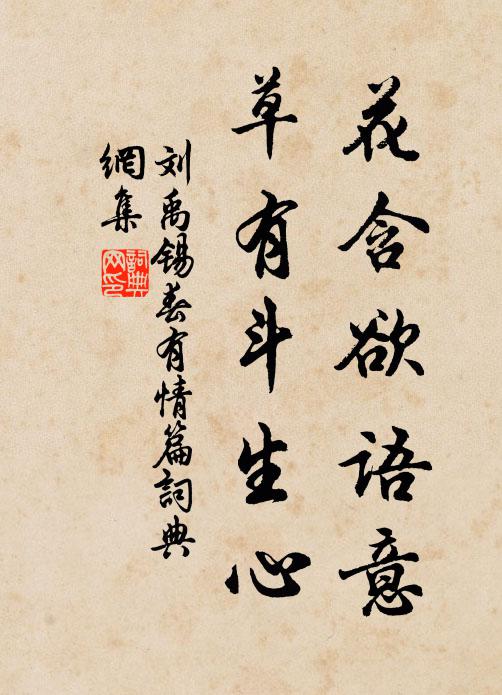 花含欲语意
草有斗生心
刘禹锡春有情篇詞典
網集
詞典
网印